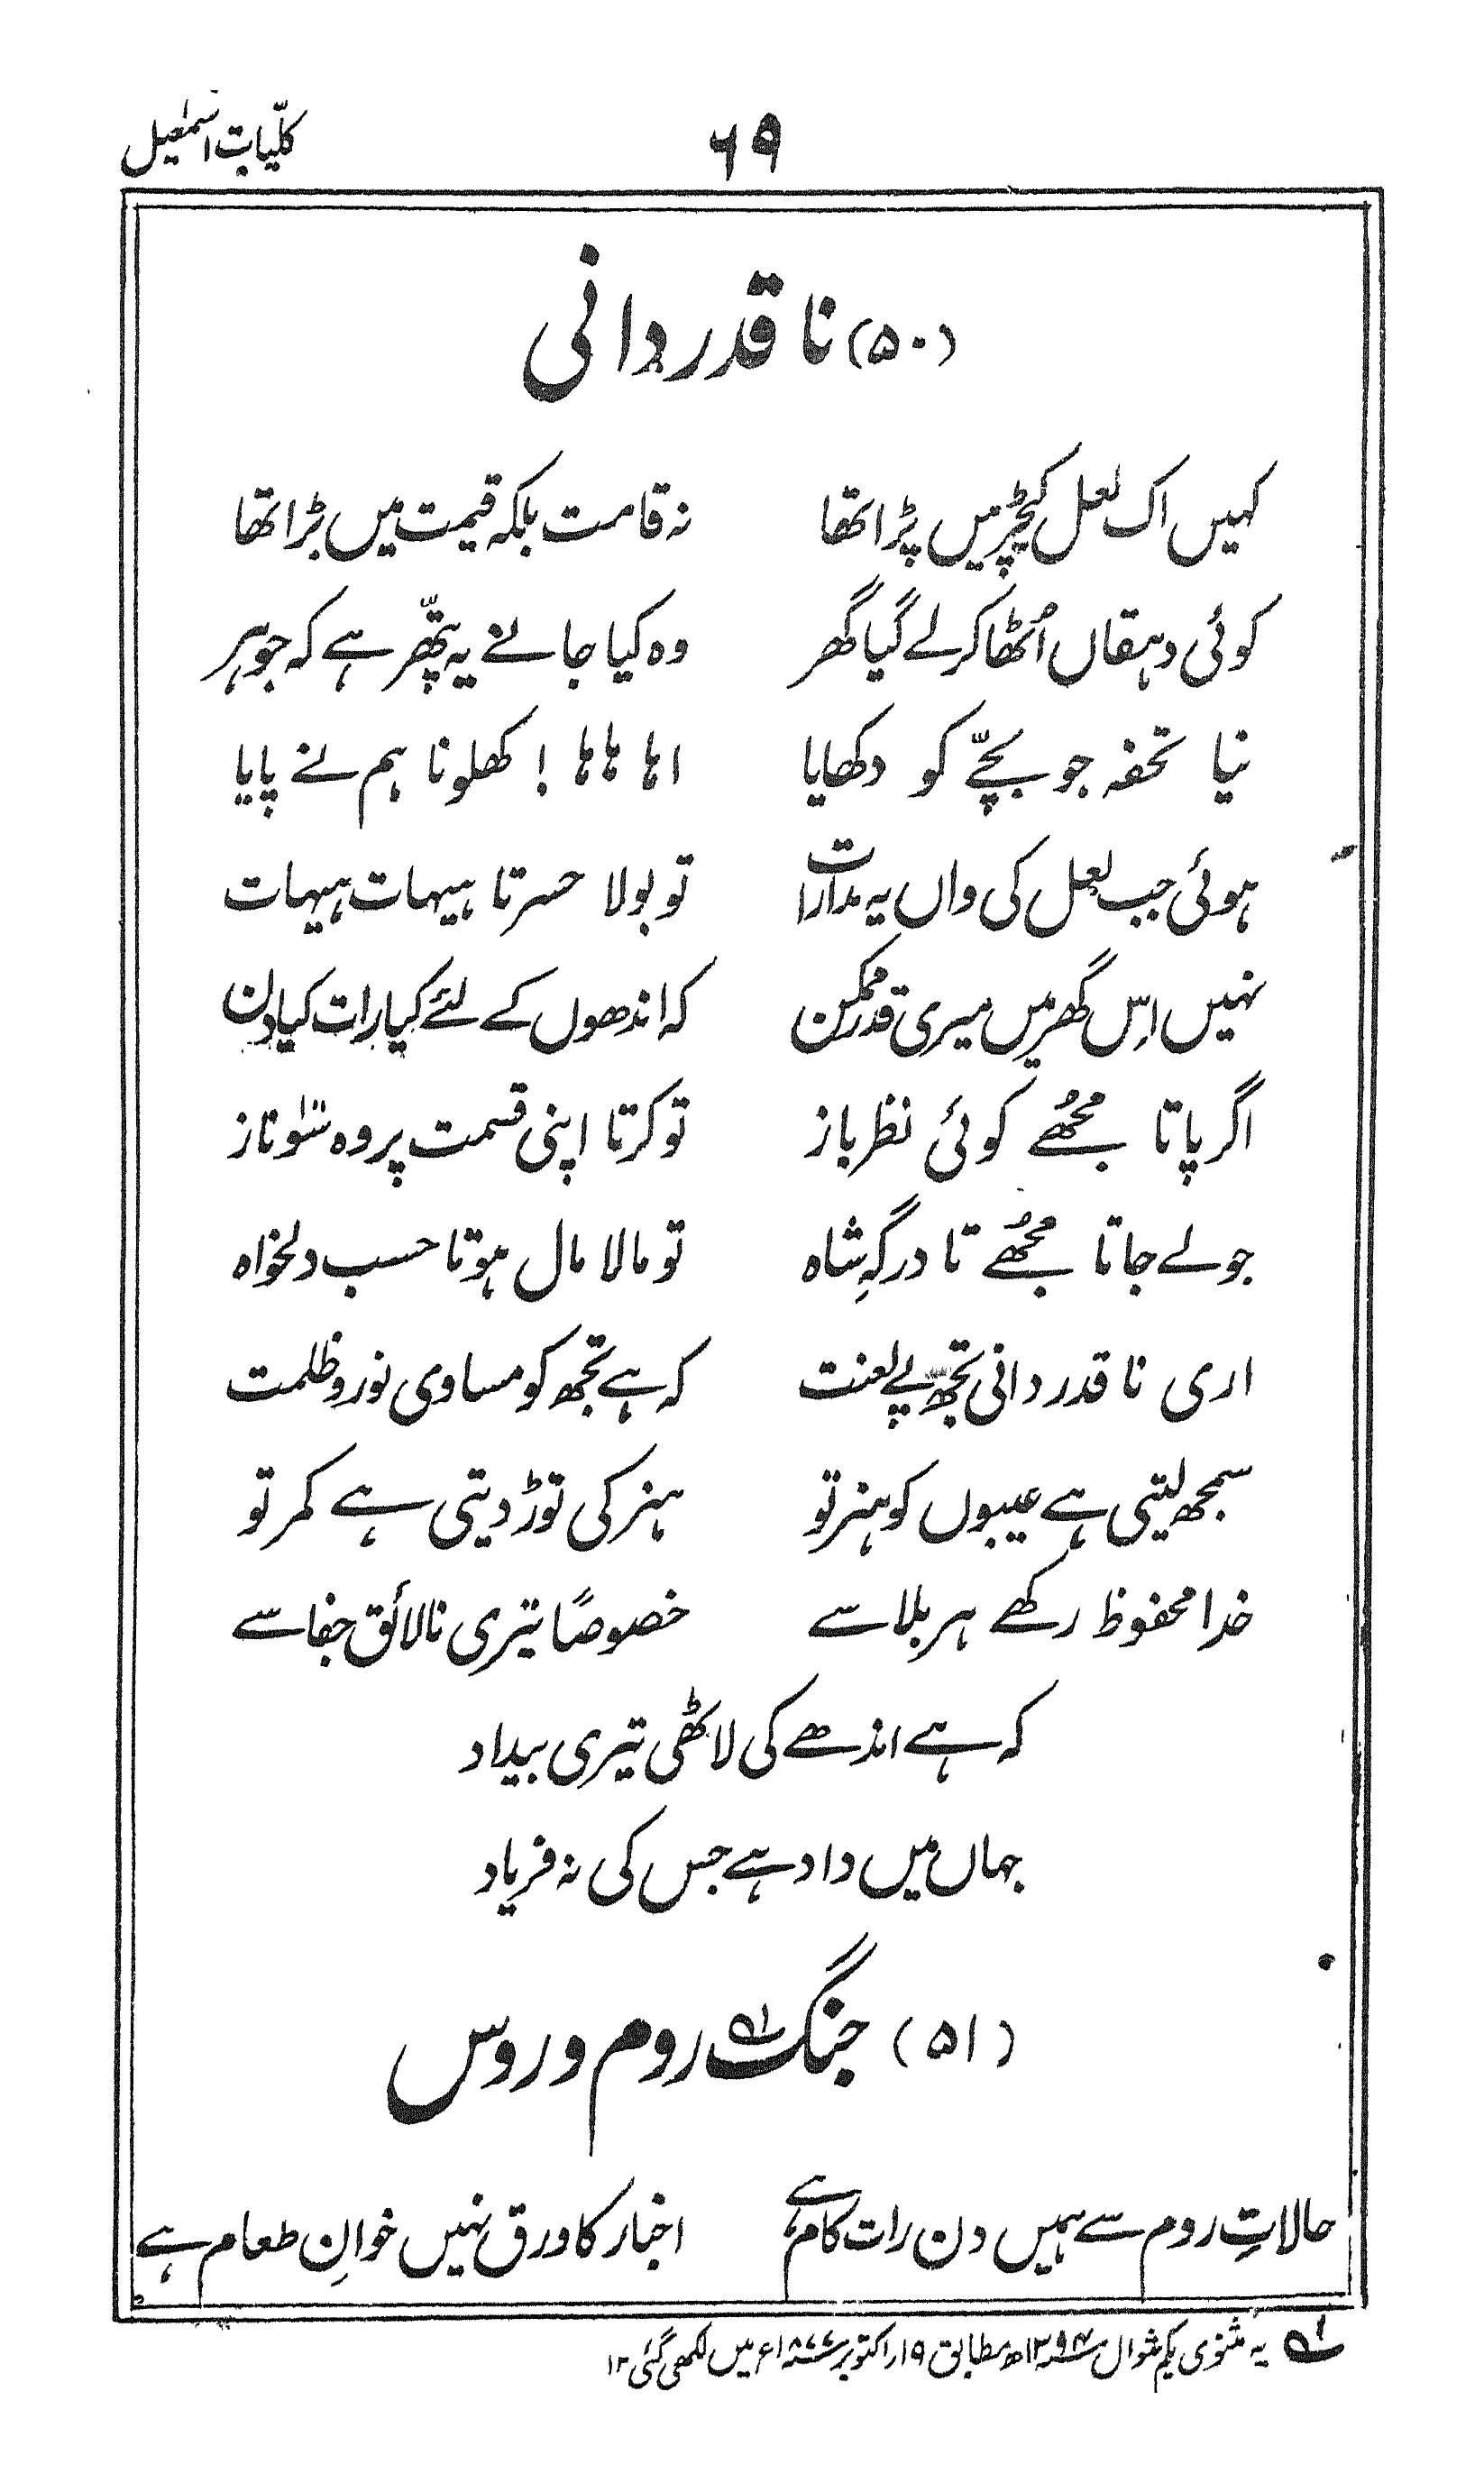 کلّیات اسمٰعیل
۶۹
(۵۰) نا قدر دانی
کہیں اک لعل کیچڑ میں پڑا تھا نہ قامت بلکہ قیمت میں بڑا تھا
کوئی دہقاں اُٹھا کر لے گیا گھر وہ کیا جانے یہ پتّھر ہے کہ جوہر
نیا تحفہ جو بچّے کو دکھایا اہا ہاہا ! کھلونا ہم نے پایا
ہوئی جب لعل کی واں یہ مدارات تو بولا حسرتا ہیہات ہیہات
نہیں اِس گھر میں میری قدر ممکن کہ اندھوں کے لئے کیا رات کیا دن
اگر پاتا مجُھے کوئی نظر باز تو کرتا اپنی قسمت پر وہ سَو ناز
جو لے جاتا مجُھے تا درگہِ شاہ تو مالا مال ہوتا حسب دلخواہ
اری نا قدر دانی تجھ پے لعنت کہ ہے تجھ کو مساوی نور و ظلمت
سمجھ لیتی ہے عیبوں کو ہنر تو ہنر کی توڑ دیتی ہے کمر تو
خدا محفوظ رکھے ہر بلا سے خصوصًا تیری نالائق جفا سے
کہ ہے اندھے کی لاٹھی تیری بیداد
جہاں میں داد ہے جس کی نہ فریاد
(۵۱) جنگ لہ روم و روس
حالاتِ روم سے ہمیں دن رات کام ہے اخبار کا ورق نہیں خوانِ طعام ہے
لہ یہ مثنوی یکم شوال ۱۲۹۴ھ مطابق ۱۹ر اکتوبر ۱۸۷۷ء میں لکھی گئی ۱۲